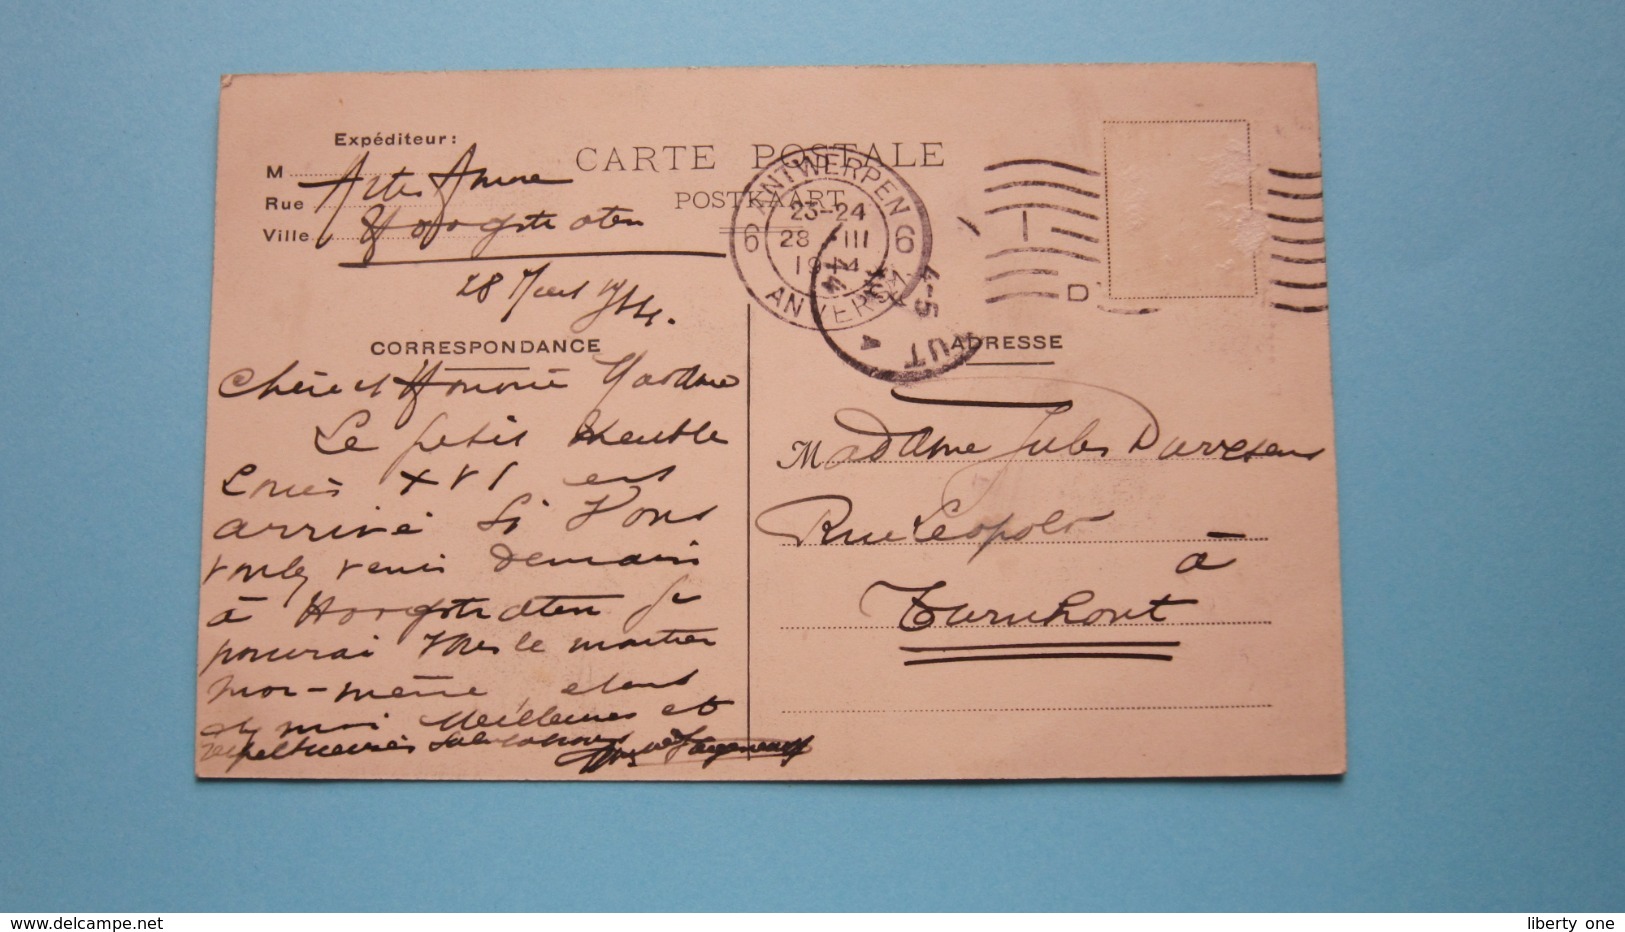 Expéditeur :
M
Rue
Ville Hoogstraten
28 Mars 1914.
CARTE POSTALE
POSTKAART
6 ANTWERPEN 6
23-24
28 III
1914
ANVERS
4-5
D
CORRESPONDANCE
ADRESSE
Chère et Honorée Madame
Le petit Meuble
Louis XVI est
arrivé Si Vous
voulez venir demain
à Hoogstraten Je
pourai Vous le montrer
moi-même, 
de moi Meilleures et
respectueuses Salutations
Madame Jules
Rue Léopold
à
Turnhout
www.delcampe.net
liberty_one